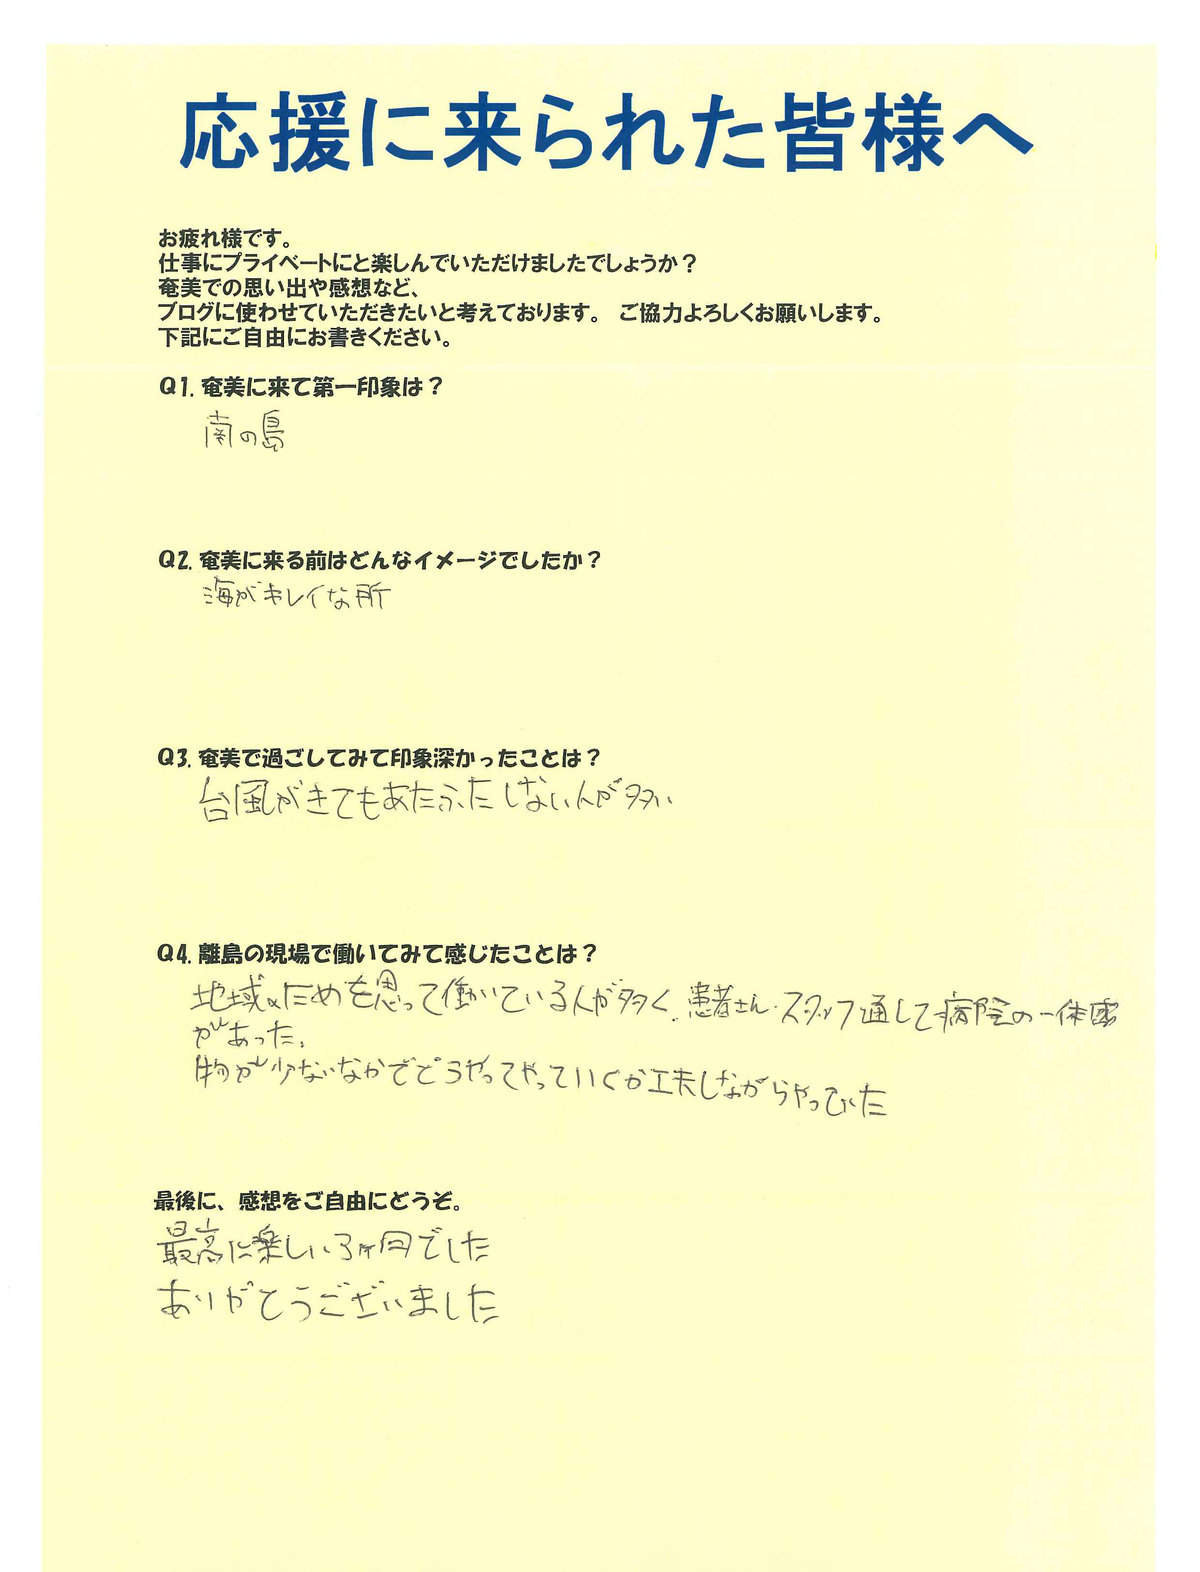 応援に来られた皆様へ
お疲れ様です。
仕事にプライベートにと楽しんでいただけましたでしょうか？
奄美での思い出や感想など、
ブログに使わせていただきたいと考えております。 ご協力よろしくお願いします。
下記にご自由にお書きください。
Q1. 奄美に来て第一印象は？
南の島
Q2. 奄美に来る前はどんなイメージでしたか？
海がキレイな所
Q3. 奄美で過ごしてみて印象深かったことは？
台風がきてもあたふたしない人が多い
Q4. 離島の現場で働いてみて感じたことは？
地域のためを思って働いている人が多く、患者さん・スタッフ通して病院の一体感
があった。
物が少ないなかでどうやってやっていくか工夫しながらやっていた
最後に、感想をご自由にどうぞ。
最高に楽しい3ヶ月でした
ありがとうございました